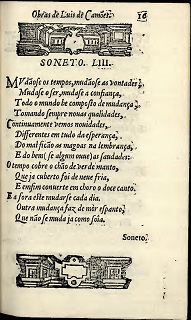 Obras de Luis de Camões. 16
SONETO. LIII.
MVdãose os tempos, mudãose as vontades,
Mudase o ser, mudase a confiança,
Todo o mundo he composto de mudança,
Tomando sempre nouas qualidades,
Continuamente vemos nouidades,
Differentes em tudo da esperança,
Do mal ficão as magoas na lembrança,
E do bem (se algum ouue) as saudades:
O tempo cobre o chão de verde manto,
Que ja cuberto foi de neue fria,
E emfim conuerte em choro o doce canto.
E a fora este mudarse cada dia.
Outra mudança faz de mòr espanto,
Que não se muda ja como soia.
Soneto.